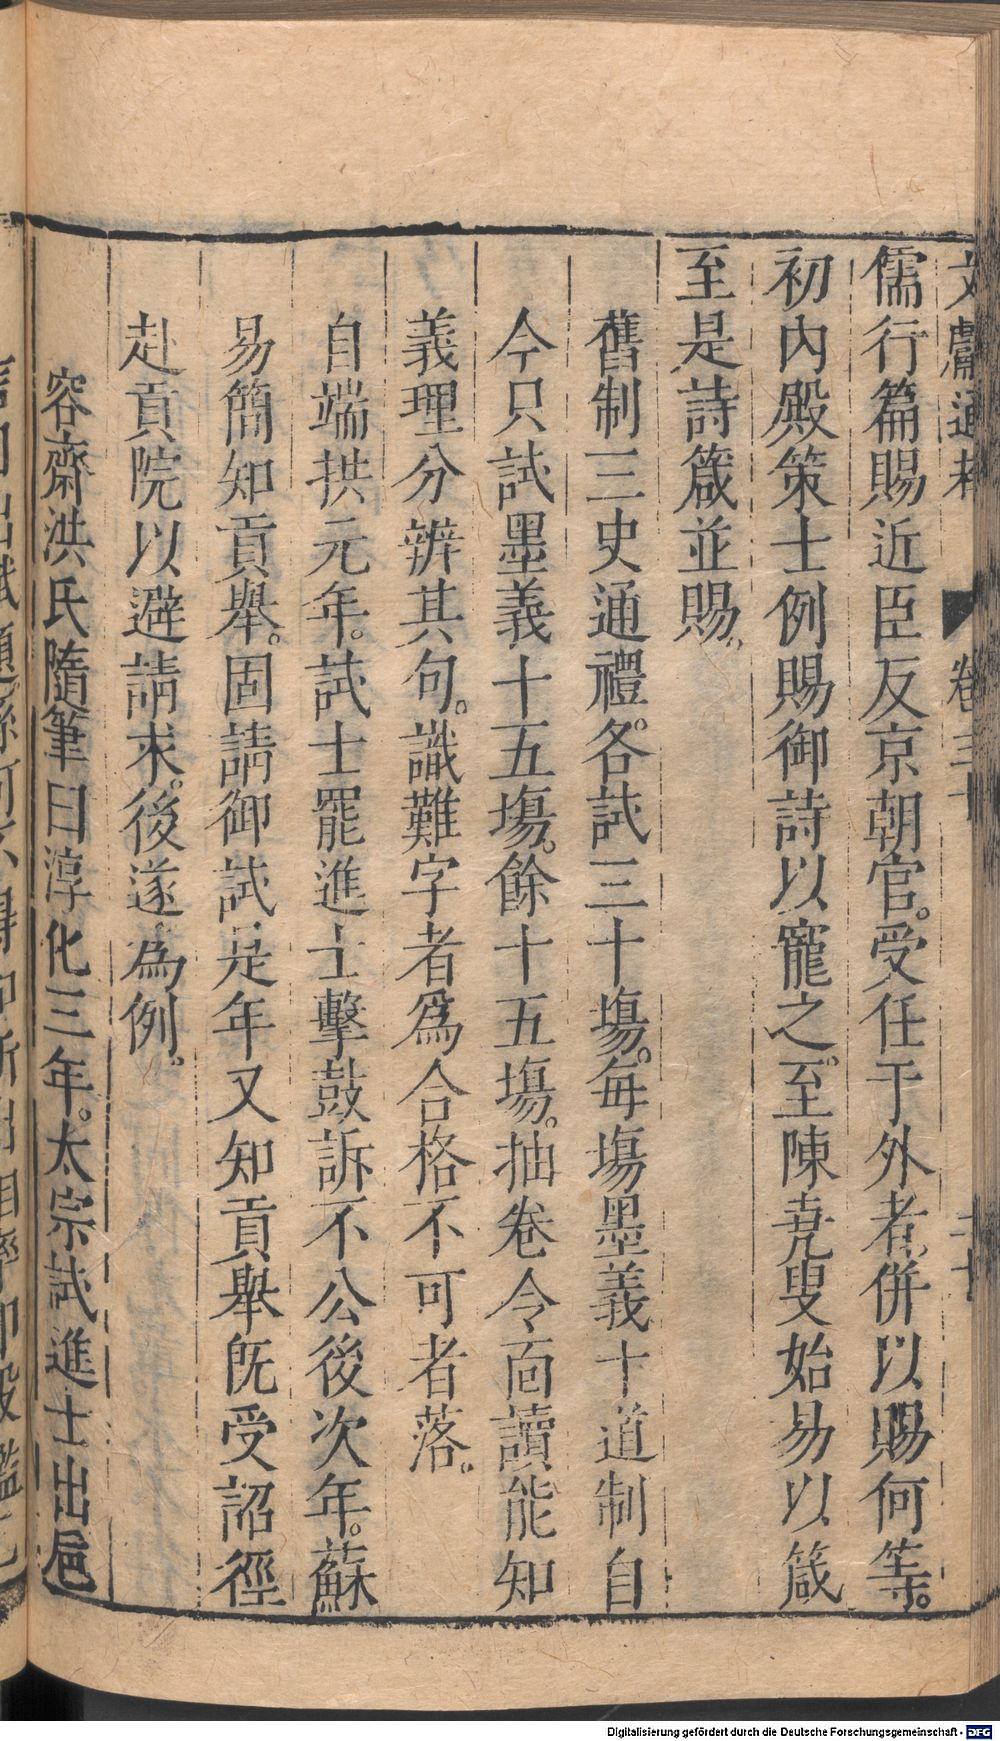 文獻通考 卷三十
儒行篇賜近臣及京朝官。受任于外者。併以賜何等。
初內殿策士例賜御詩以寵之。至陳堯叟始易以箴
至是詩箴並賜。
舊制三史通禮。各試三十塲。每塲墨義十道制自
今只試墨義十五塲。餘十五塲。抽卷令面讀能知
義理分辨其句。識難字者爲合格不可者落。
自端拱元年。試士罷進士擊鼓訴不公後次年。蘇
易簡知貢舉。固請御試是年又知貢舉旣受詔徑
赴貢院以避請求。後遂為例。
容齋洪氏隨筆曰淳化三年。太宗試進士出巵
Digitalisierung gefördert durch die Deutsche Forschungsgemeinschaft - DFG